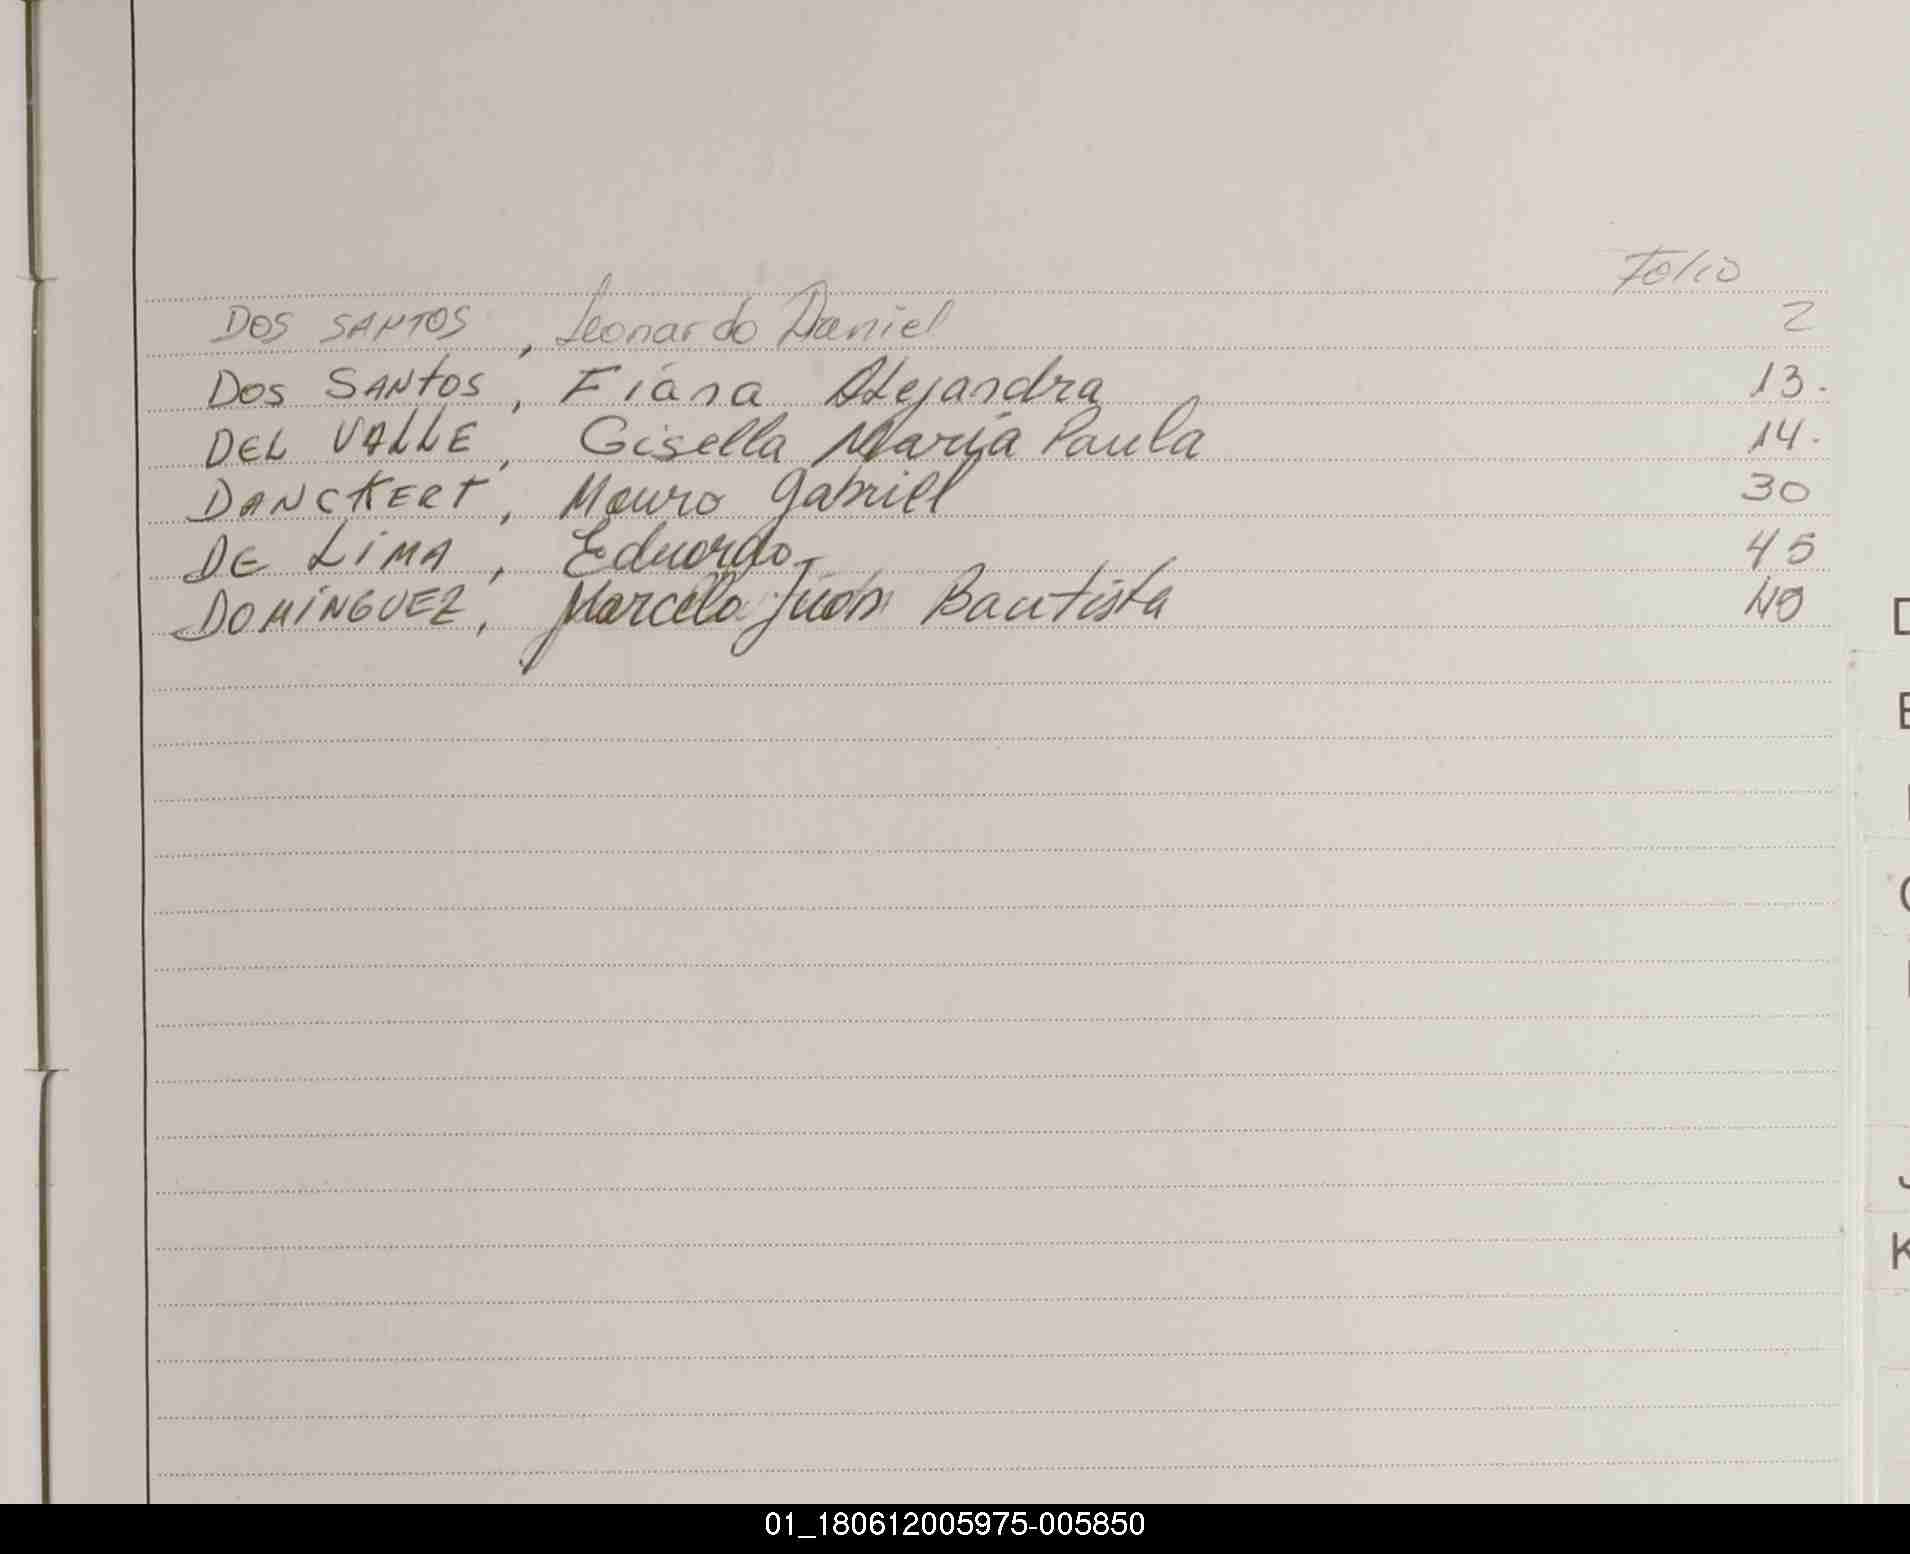 Folio
DOS SANTOS, Leonardo Daniel 2
DOS SANTOS, Fiána Alejandra 13.
DEL VALLE, Gisella María Paula 14.
DANCKERT, Mauro Gabriel 30
DE LIMA, Eduardo 45
DOMÍNGUEZ, Marcelo Juan Bautista 49
D
E
J
K
01_180612005975-005850